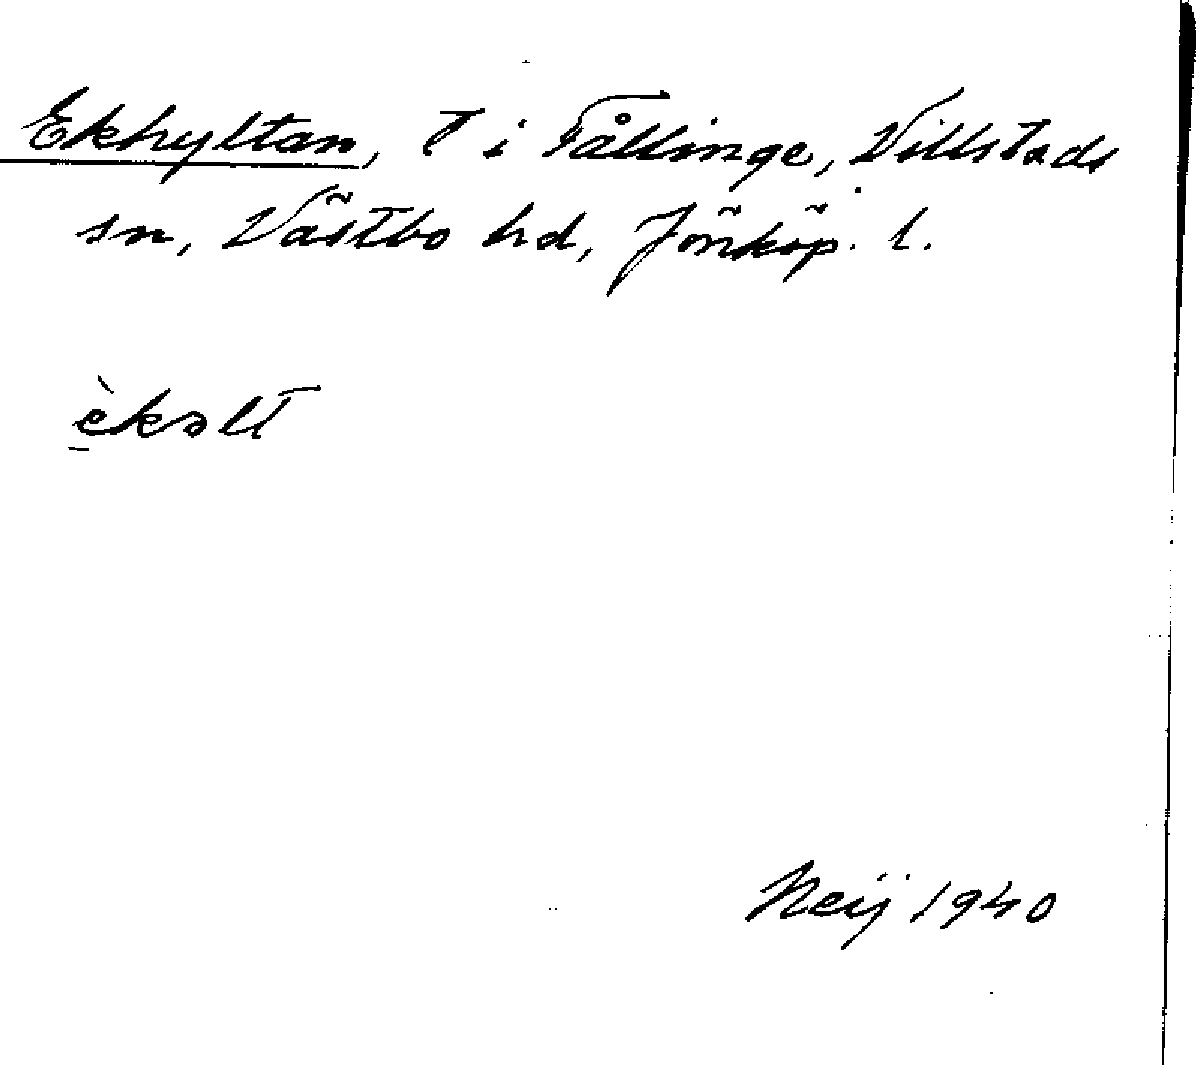 Ekhyltan, T i Tållinge, Villstads
sn, Västbo hd, Jönköp. l.
èkəlt
Neij 1940